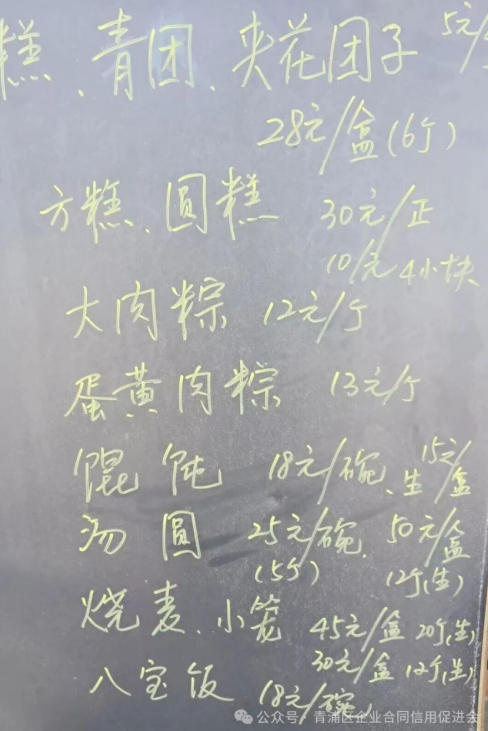 糕、青团、夹花团子 5元/
28元/盒(6个)
方糕、圆糕 30元/正
10/元 4小块
大肉粽 12元/个
蛋黄肉粽 13元/个
馄饨 18元/碗、生 15元/盒
汤圆 25元/碗、50元/盒
(5个) 12个(生)
烧麦、小笼 45元/盒 20个(生)
30元/盒 12个(生)
八宝饭 18元/碗
公众号·青浦区企业合同信用促进会